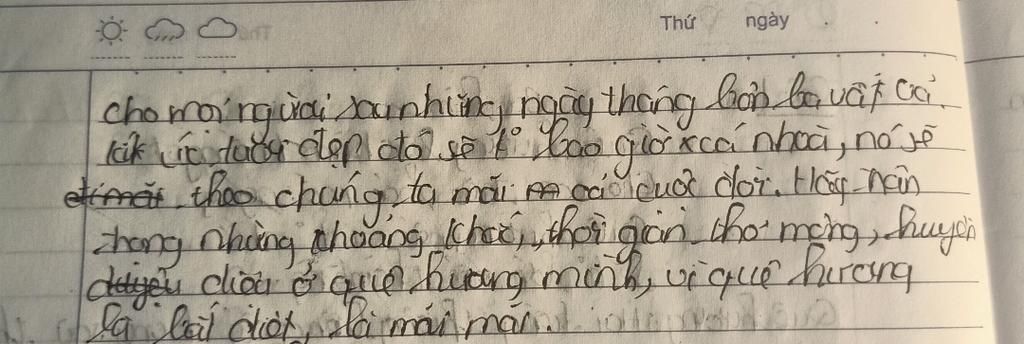 Thứ ngày
cho mọi người sau những ngày tháng bôn ba vất vả.
kí ức tươi đẹp đó sẽ k bao giờ xoá nhoà, nó sẽ
theo chúng ta mãi cả cuộc đời. Hãy trân
trọng những khoảng khắc, thời gian thơ mộng, huyền
diệu ở quê hương mình, vì quê hương
là bất diệt, là mãi mãi.